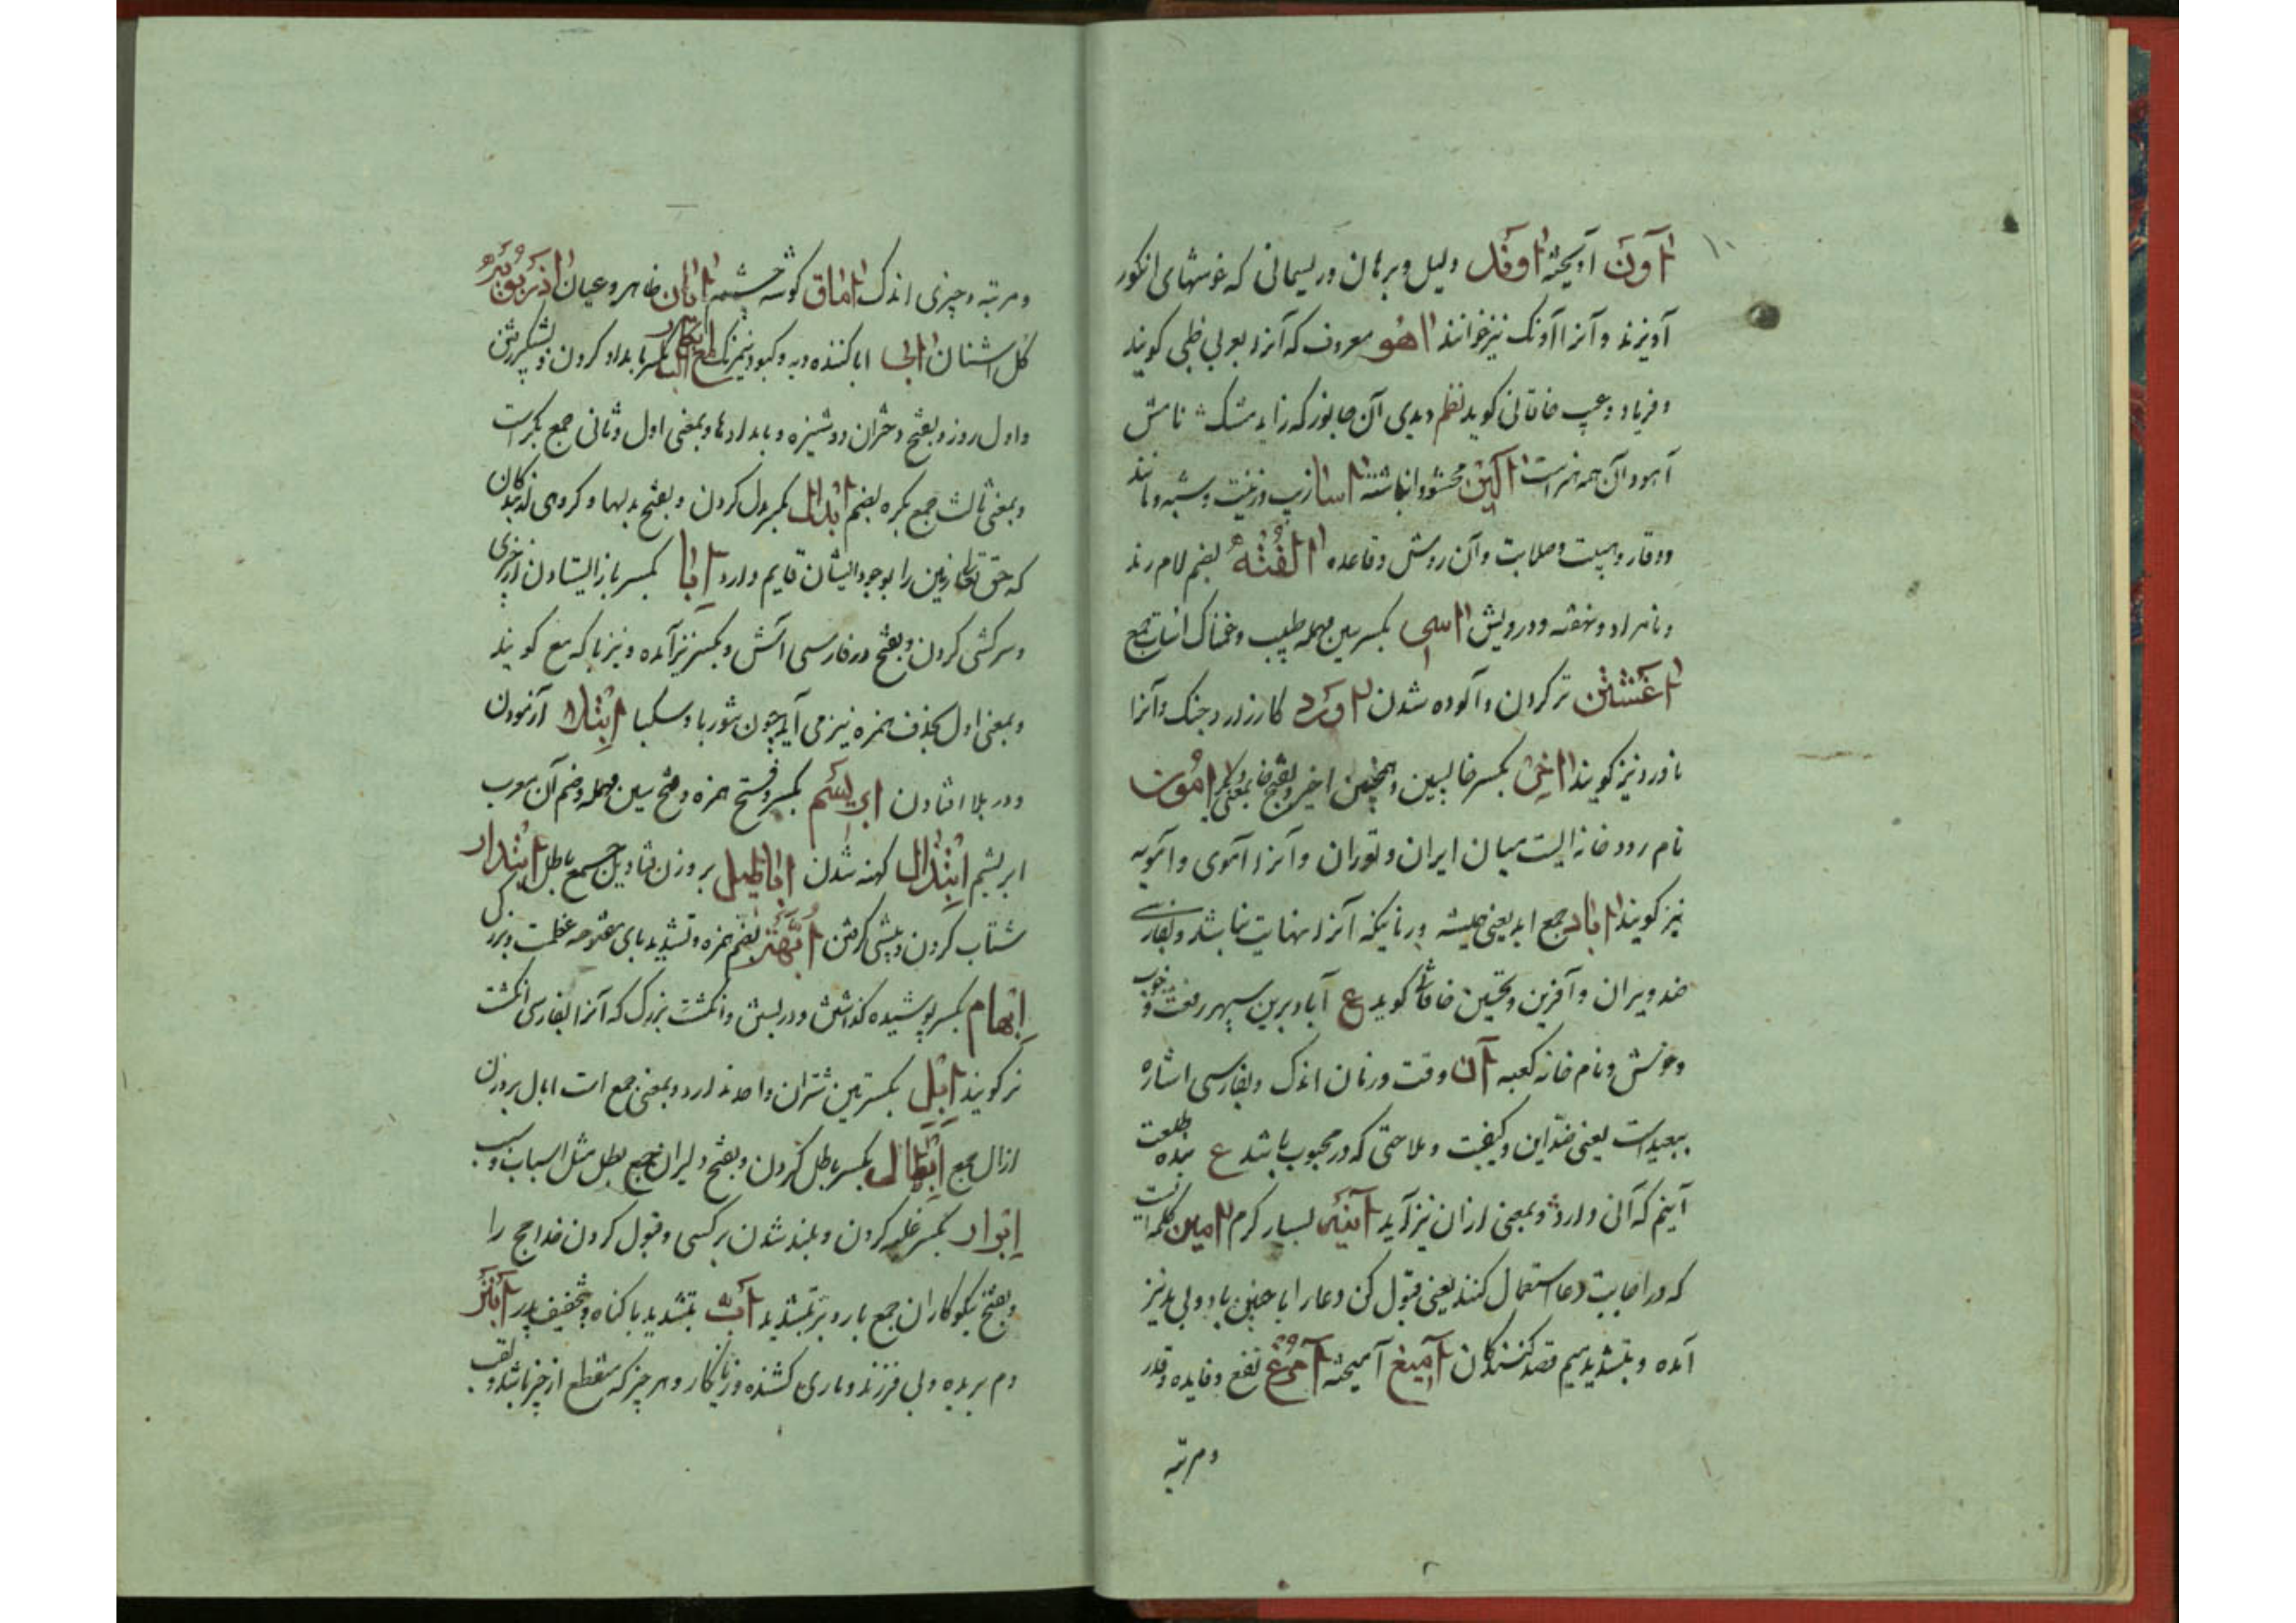 آون آویخته آوند دلیل و برهان و ریسمانی که خوشهای انکور
آویزند و آنرا آونک نیز خوانند آهو معروف که آنرا بعربی ظبی کویند
و فریاد و عیب خاقانی کوید نظم دیدی آن جانور که زاید مشک نامش
آهو و آن همه هنر است آکین محشو و انباشته آسا زیب و زینت و شبه و مانند
و وقار و هیبت و صلابت و آن روش و قاعده آلفته بضم لام رند
و نامراد و نهفته و درویش آسی بکسر سین مهمله طبیب و غمناک اسات جمع
آغشتن تر کردن و آلوده شدن آورد کارزار و جنک و آنرا
ناورد نیز کویند آخر بکسر خا پسین و همچنین اخیر و بفتح خا بمعنی دیکر آموت
نام رودخانه ایست میان ایران و توران و آنرا آموی و آمویه
نیز کویند آباد جمع ابد یعنی همیشه و زمانیکه آنرا نهایت نباشد و بفارسی
ضد ویران و آفرین و تحسین خاقانی کوید ع آباد برین سپهر رفعت و خوب
و خوش و نام خانه کعبه آن وقت و زمان اندک و بفارسی اشاره
ببعید است یعنی ضد این و کیفیت و ملاحتی که در محبوب باشد ع بنده طلعت
آنیم که آنی دارد و بمعنی از ان نیز آید آنیه بسیار کرم آمین کلمه ایست
که در اجابت دعا استعمال کنند یعنی قبول کن دعا را یا چنین باد و بی مد نیز
آمده و بتشدید میم قصد کنندکان آمیغ آمیخته آمرغ نفع و فایده و قدر
و مرتبه
و مرتبه و چیزی اندک آماق کوشه چشم آبان ظاهر و عیان آذربویه
کل اشنان آبی ابا کننده و به و کبود نیمرنک ابکار بکسر بامداد کردن و شبکیر رفتن
و اول روز و بفتح دختران دوشیزه و بامدادها و بمعنی اول و ثانی جمع بکر است
و بمعنی ثالث جمع بکره بضم ابدال بکسر بدل کردن و بفتح بدلها و کروهی از بندکان
که حق تعالی زمین را بوجود ایشان قایم دارد ابا بکسر باز ایستادن از چیزی
و سرکشی کردن و بفتح در فارسی آش و بکسر نیز آمده و نیز با که مع کویند
و بمعنی اول بحذف همزه نیز می آید چون شوربا و سکبا ابتلا آزمودن
و در بلا افتادن ابریسم بکسر و فتح همزه و فتح سین مهمله و ضم آن معرب
ابریشم ابتذال کهنه شدن اباطیل بر وزن قنادیل جمع باطل ابتدار
شتاب کردن و پیشی کرفتن ابهة بضم همزه و تشدید بای مفتوحه عظمت و بزرکی
ابهام بکسر پوشیده کذاشتن و در بستن و انکشت بزرک که آنرا بفارسی انکشت
نر کویند ابل بکسرتین شتران واحد ندارد و بمعنی جمع است ابال بر وزن
ازال جمع ابطال بکسر باطل کردن و بفتح دلیران جمع بطل مثل اسباب و سبب
ابرار بکسر غلبه کردن و بلند شدن بر کسی و قبول کردن خدا حج را
و بفتح نیکوکاران جمع بار و بر بتشدید ابت بتشدید با کناه و بتخفیف پدر ابتر
دم بریده و بی فرزند و ماری کشنده و زیانکار و هر چیز که منقطع از خیر باشد و لقب